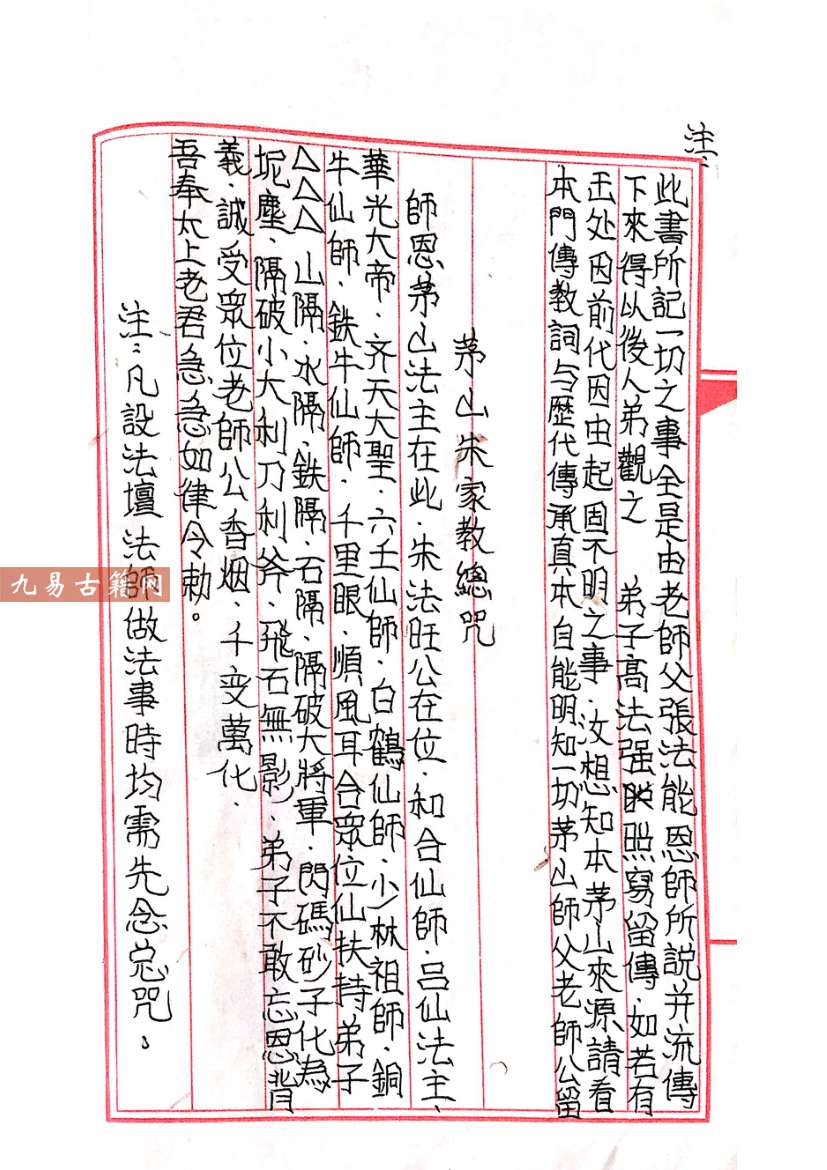 注：
此書所記一切之事全是由老師父張法能恩師所説并流傳
下來得以後人弟觀之 弟子高法强照寫留傳、如若有
玉处因前代因由起固不明之事、汝想知本茅山來源請看
本門傳教詞与歷代傳承真本自能明知一切茅山師父老師公留
茅山朱家教總咒
師恩茅山法主在此．朱法旺公在位．和合仙師．吕仙法主、
華光大帝．齐天大聖．六壬仙師．白鶴仙師．少林祖師．銅
牛仙師．鉄牛仙師．千里眼．順風耳合衆位仙扶持弟子
△△△山隔．水隔．鉄隔．石隔．隔破大將軍．閃碼砂子化為
坭塵、隔破小大利刀利斧．飛石無影．弟子不敢忘恩背
義．誠受衆位老師公香烟、千变萬化．
吾奉太上老君急急如律令勅。
注：凡設法壇法師做法事時均需先念总咒。
九易古籍网